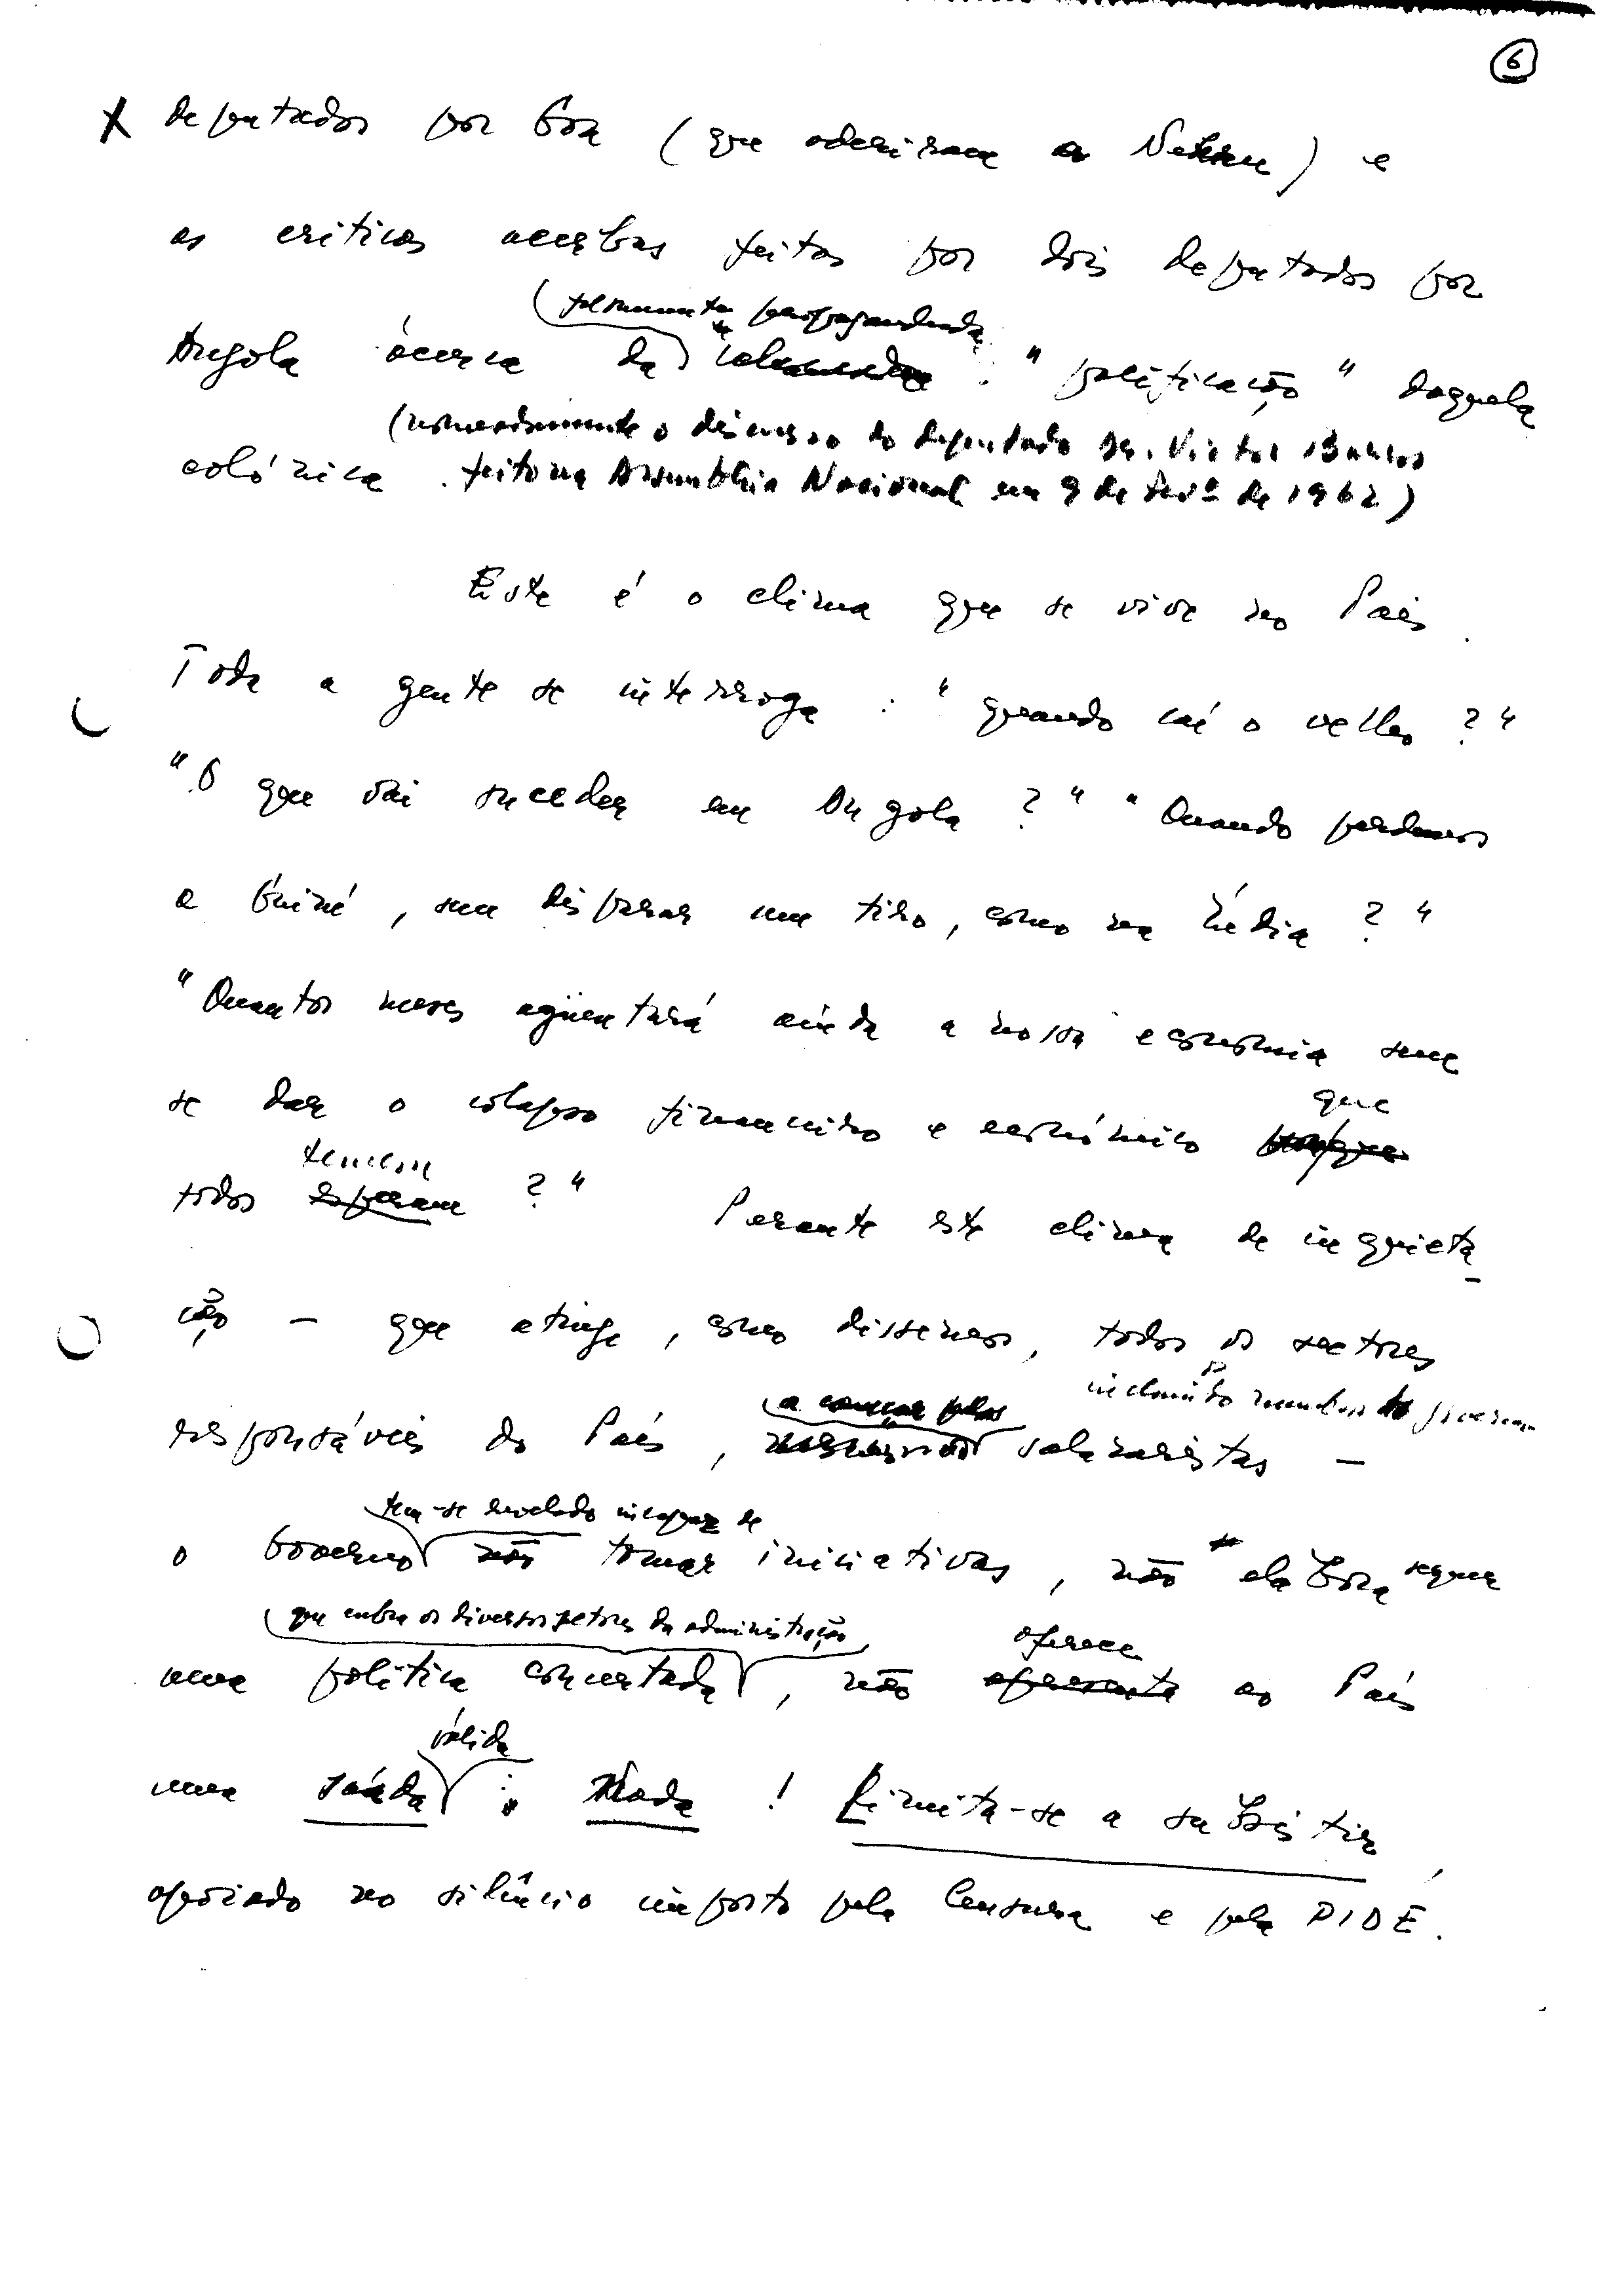 6
X deputados por Goa (que aderiram a Nehru) e
as críticas acerbas feitas por dois deputados por
(falsamente propagandeada
Angola àcerca da : "pacificação" daquela
(nomeadamente o discurso do deputado Sr. Victor Barros
colónia. feito na Assembleia Nacional em 9 de Fevº de 1962)
Este é o clima que se vive no País.
Toda a gente se interroga : "quando cai o velho ?"
"O que vai suceder em Angola ?" "Quando perdemos
a Guiné, sem disparar um tiro, como na Índia ?"
"Quantos meses agüentará ainda a nossa economia sem
que
se dar o colapso financeiro e económico
temem
todos esperam ?" Perante este clima de inquieta-
ção – que atinge, como dissemos, todos os sectores
a começar pelos incluindo membros do governo
responsáveis do País, salazaristas –
tem-se revelado incapaz de
o Governo não tomar iniciativas, não elabora sequer
que cubra os diversos setores da administração
oferece
uma política concertada, não apresenta ao País
válida
uma saída : Nada ! Limita-se a subsistir,
apoiado no silêncio imposto pela Censura e pela PIDE.